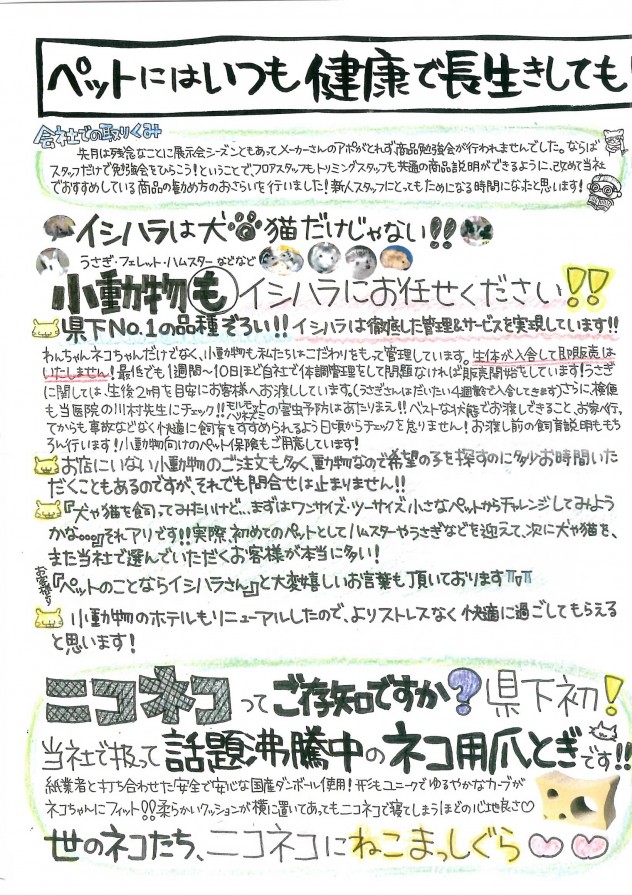 ペットにはいつも健康で長生きしても
会社での取りくみ
先月は残念なことに展示会シーズンともあってメーカーさんのアポがとれず商品勉強会が行われませんでした。ならば
スタッフだけで勉強会をひらこう!ということでフロアスタッフもトリミングスタッフも共通の商品説明ができるように、改めて当社
でおすすめしている商品の勧め方のおさらいを行いました!新人スタッフにとってもためになる時間になったと思います!
イシハラは犬 猫だけじゃない!!
うさぎ・フェレット・ハムスターなどなど
小動物もイシハラにお任せください!!
県下No.1の品種ぞろい!!イシハラは徹底した管理&サービスを実現しています!!
わんちゃんネコちゃんだけでなく、小動物も私たちはこだわりをもって管理しています。生体が入舎して即販売は
いたしません!最低でも1週間〜10日ほど自社で体調管理をして問題なければ販売開始をしています!うさぎ
に関しては、生後2ヶ月を目安にお客様へお渡ししています。(うさぎさんはだいたい4週齢で入舎してきます)さらに、検便
も当医院の川村先生にチェック!!モルモットハリネズミの害虫予防はあたりまえ!!ベストな状態でお渡しできること、お家へ行っ
てからも事故などなく快適に飼育をすすめられるよう日頃からチェックを怠りません!お渡し前の飼育説明ももち
ろん行います!小動物向けのペット保険もご用意しています!
お店にいない小動物のご注文も多く、動物なので希望の子を探すのに多少お時間いた
だくこともあるのですが、それでも問合せは止まりません!!
『犬や猫を飼ってみたいけど...まずはワンサイズ・ツーサイズ小さなペットからチャレンジしてみよう
かな...』それアリです!!実際、初めてのペットとしてハムスターやうさぎなどを迎えて、次に犬や猫を、
また当社で選んでいただくお客様が本当に多い!
お客様より『ペットのことならイシハラさん』と大変嬉しいお言葉も頂いております
小動物のホテルもリニューアルしたので、よりストレスなく快適に過ごしてもらえる
と思います!
ニコネコってご存知ですか?県下初!
当社で扱って話題沸騰中のネコ用爪とぎです!!
紙業者と打ち合わせた安全で安心な国産ダンボール使用!形もユニークでゆるやかなカーブが
ネコちゃんにフィット!!柔らかいクッションが横に置いてあってもニコネコで寝てしまうほどの心地良さ♡
世のネコたち、ニコネコにねこまっしぐら